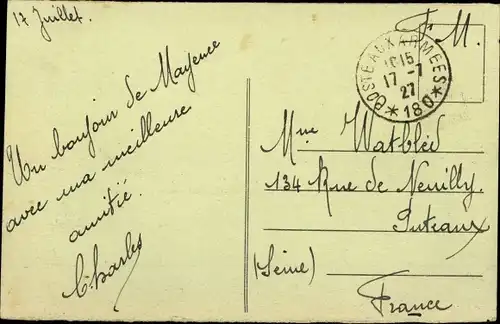 17 Juillet.
Un bonjour de Mayence
avec ma meilleure
amitié.
Charles
F. M.
POSTE AUX ARMEES
1015
17-7
27
*180*
Mme Watbled
134 Rue de Neuilly.
Puteaux
(Seine)
France